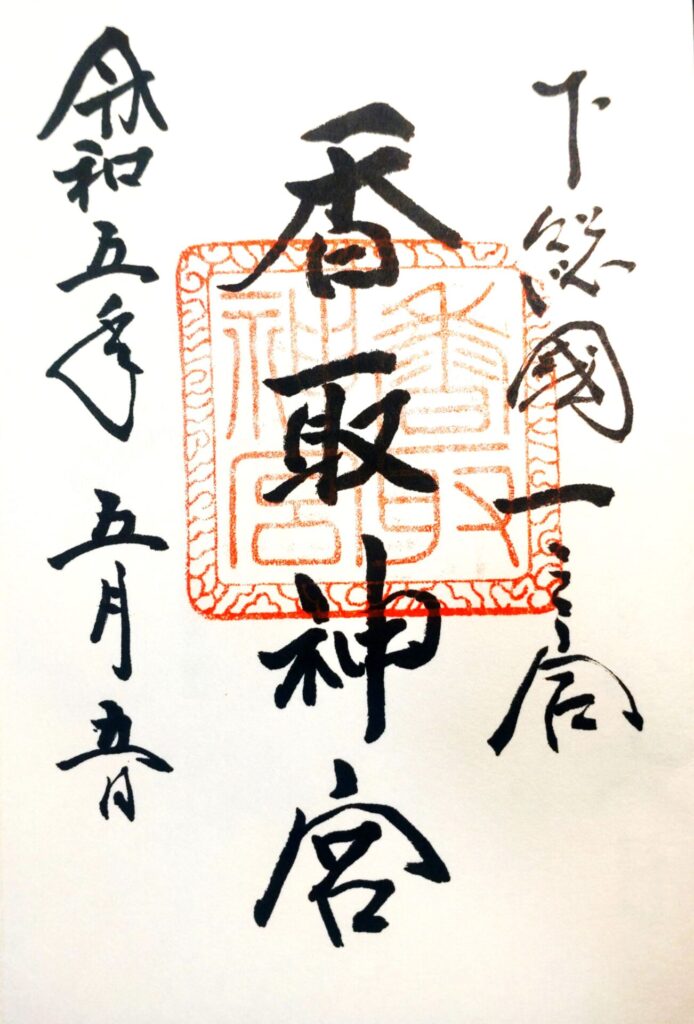 下総國一之宮
香取神宮
香取神宮
令和五年五月五日